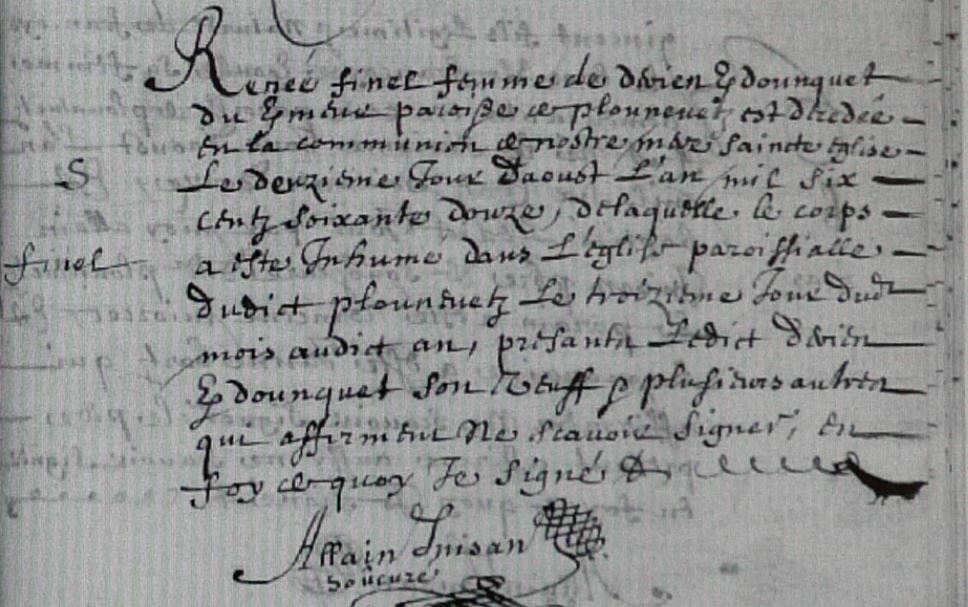 Renee finel femme de Derien Kdounquet
du Kmeur paroisse de plounevetz est decedée
en la communion de nostre mere saincte eglise
S Le deuzieme Jour Daoust L'an mil six
centz soixante douze, de laquelle le corps
finel a este Inhumé dans L'eglise paroissialle
dudict plounevetz Le troizieme Jour dudt
mois audict an, presantz Ledict Derien
Kdounquet son veuff & plusieurs autres
qui affirment Ne scavoir signer, en
foy de quoy Je signé
Allain Inisan
soucuré